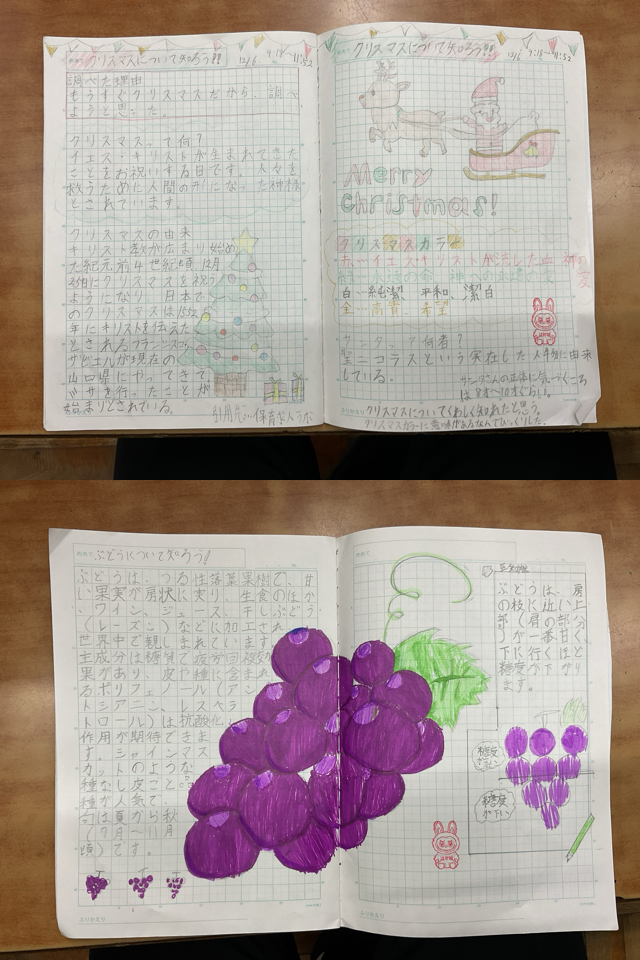 クリスマスについて知ろう!!
12/6 9:18〜11:52
調べた理由
もうすぐクリスマスだから、調べ
ようと思った。
クリスマスって何?
イエス・キリストが生まれてきた
ことをお祝いする日です。人々を
救うために人間の形になった神様
とされています。
クリスマスの由来
キリスト教が広まり始め
た紀元前4世紀頃12月
にクリスマスを祝う
ようになり、日本で
のクリスマスは
年にキリストを伝えた
とされるフランシスコ
ザビエルが現在の
山口県にやってきて
ミサを行ったことが
始まりとされている。
引用元…保育求人ラボ
クリスマスについて知ろう!!
12/6 9:18〜11:52
Merry
Christmas!
クリスマスカラー
赤…イエス・キリストが流した血 神の愛
白…純潔、平和、潔白
金…高貴、希望
何者
聖ニコラスという実在した人物に由来
している。
サンタさんの正体に気づくころ
は
クリスマスについてくわしく知れたと思う。
クリスマスカラーに意味があるなんてびっくりした。
ぶどうについて知ろう!
ぶどうは、つる性落葉果樹で、甘
い果実が房状に実り、生食のほか
、ワイン、ジュース、干しぶどう
(レーズン)などに加工され
世界中で親しまれています
主成分は糖質で疲労回復効
果があり、皮や種に含まれ
るポリフェノール(アン
トシアニン、レスベラ
トロール)は抗酸化
作用が期待できま
す。シャインマス
カットのような
種なし皮ごと。
種が人気で、
旬は夏から秋
(7月〜11月
頃)です。
豆知識
ぶどうは、房
の枝に近い上
部(肩の部分
)が一番甘く
下に行くほど
糖度が下がり
ます。
糖度
が高い
糖度
が下い
ふりかえり